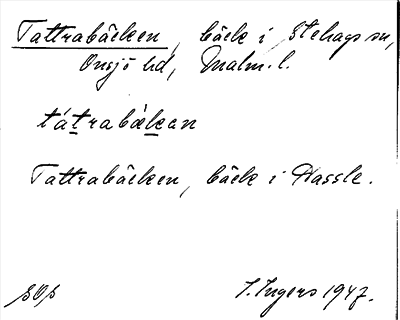 Tattrabäcken, bäck i Stehags sn,
Onsjö hd, Malm. l.
tátrabäkan
Tattrabäcken, bäck i Hassle.
SOS I. Ingers 1947.